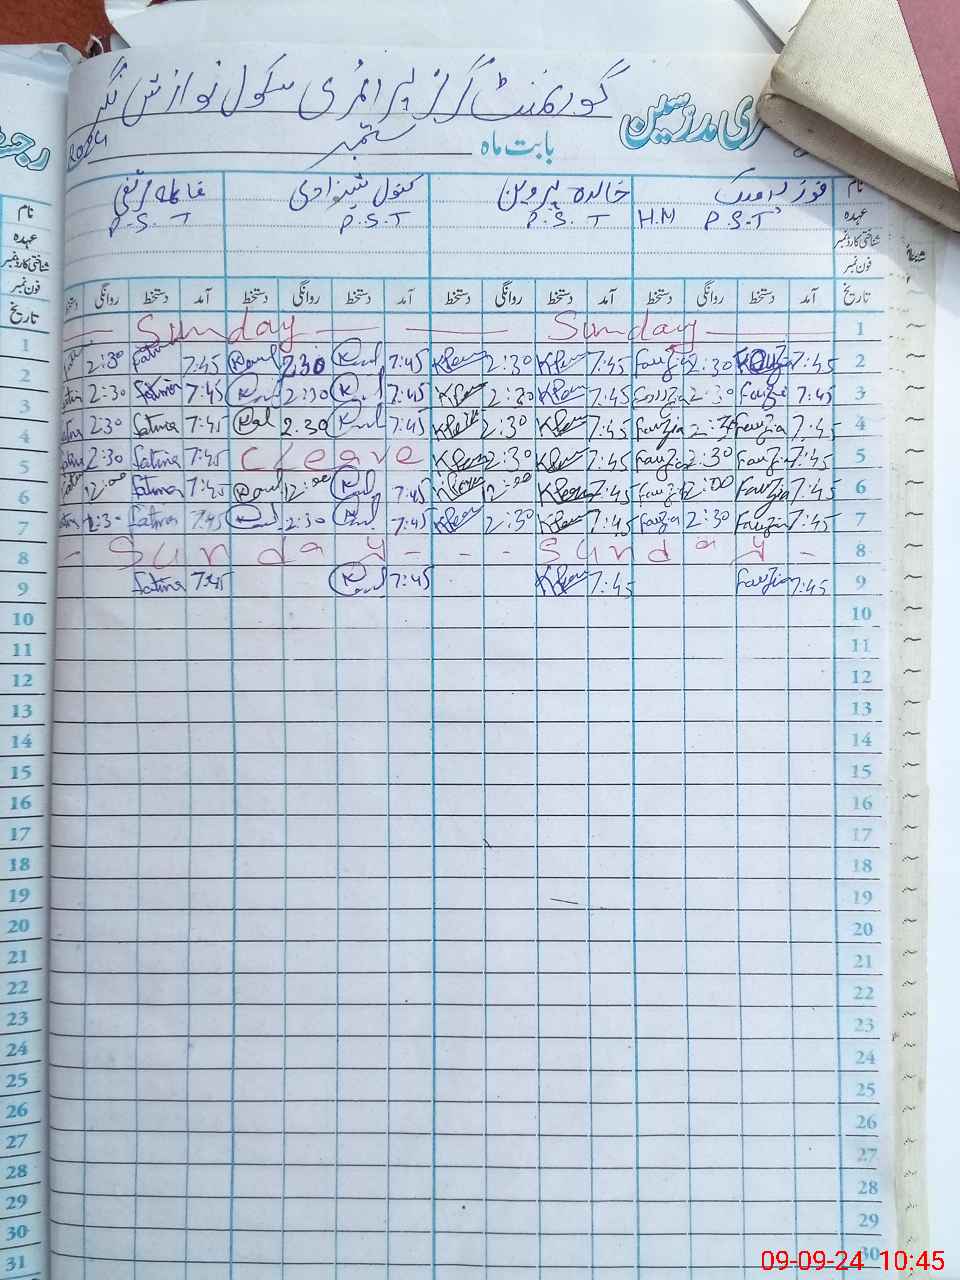 گورنمنٹ گرلز پرائمری سکول نوازش نگر
ری مدرسین
بابت ماہ ستمبر 2024
نام فوزیہ خالدہ پروین کنول شہزادی فاطمہ مرتضی
عہدہ H.M P.S.T P.S.T P.S.T P.S.T
شناختی کارڈ نمبر
فون نمبر
تاریخ آمد دستخط روانگی دستخط آمد دستخط روانگی دستخط آمد دستخط روانگی دستخط آمد دستخط روانگی دستخط
1 Sunday Sunday
2 7:45 2:30 Fauzia 7:45 2:30 7:45 2:30 7:45 Fatima 2:30
3 7:45 Fauzia 2:30 Fauzia 7:45 2:30 7:45 2:30 7:45 Fatima 2:30
4 7:45 Fauzia 2:30 Fauzia 7:45 2:30 7:45 2:30 7:45 Fatima 2:30
5 7:45 Fauzia 2:30 Fauzia 7:45 2:30 C leave 7:45 Fatima 2:30
6 7:45 Fauzia 12:00 Fauzia 7:45 12:00 7:45 12:00 7:45 Fatima 12:00
7 7:45 Fauzia 2:30 Fauzia 7:45 2:30 7:45 2:30 7:45 Fatima 2:30
8 Sunday Sunday
9 7:45 Fauzia 7:45 7:45 7:45 Fatima
10
11
12
13
14
15
16
17
18
19
20
21
22
23
24
25
26
27
28
29
30
نام
عہدہ
شناختی کارڈ نمبر
فون نمبر
تاریخ
1
2
3
4
5
6
7
8
9
10
11
12
13
14
15
16
17
18
19
20
21
22
23
24
25
26
27
28
29
30
31
09-09-24 10:45